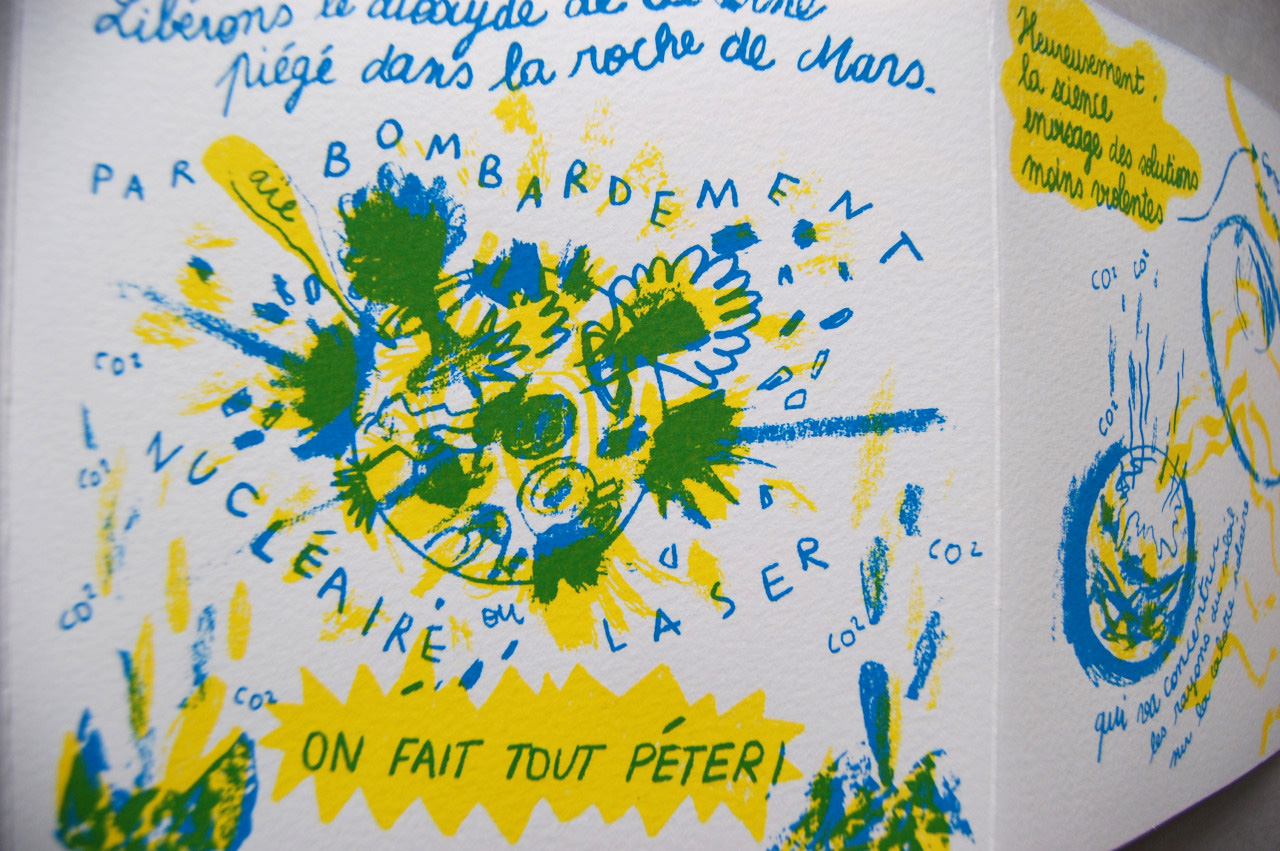 Libérons le dioxyde de carbone
piégé dans la roche de Mars.
PAR BOMBARDEMENT
aïe
NUCLÉAIRE ou LASER
CO2
CO2
CO2
CO2
CO2
CO2
ON FAIT TOUT PÉTER!
Heureusement,
la science
envisage des solutions
moins violentes
CO2
CO2
CO2
qui va concentrer
les rayons du soleil
sur la calotte polaire